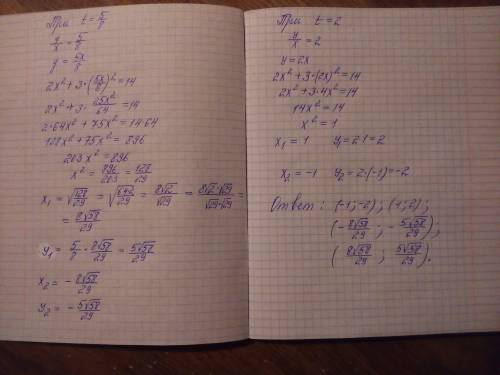 При t = 5/8
y/x = 5/8
y = 5x/8
2x² + 3·(5x/8)² = 14
2x² + 3·25x²/64 = 14
2·64x² + 75x² = 14·64
128x² + 75x² = 896
203x² = 896
x² = 896/203 = 128/29
x₁ = √(128/29) = √(64·2/29) = 8√2/√29 = 8√2·√29/√29·√29 =
= 8√58/29
y₁ = 5/8 · 8√58/29 = 5√58/29
x₂ = - 8√58/29
y₂ = - 5√58/29
При t = 2
y/x = 2
y = 2x
2x² + 3·(2x)² = 14
2x² + 3·4x² = 14
14x² = 14
x² = 1
x₁ = 1 y₁ = 2·1 = 2
x₂ = -1 y₂ = 2·(-1) = -2
Ответ: (-1; -2); (1; 2);
(- 8√58/29 ; - 5√58/29);
(8√58/29 ; 5√58/29).